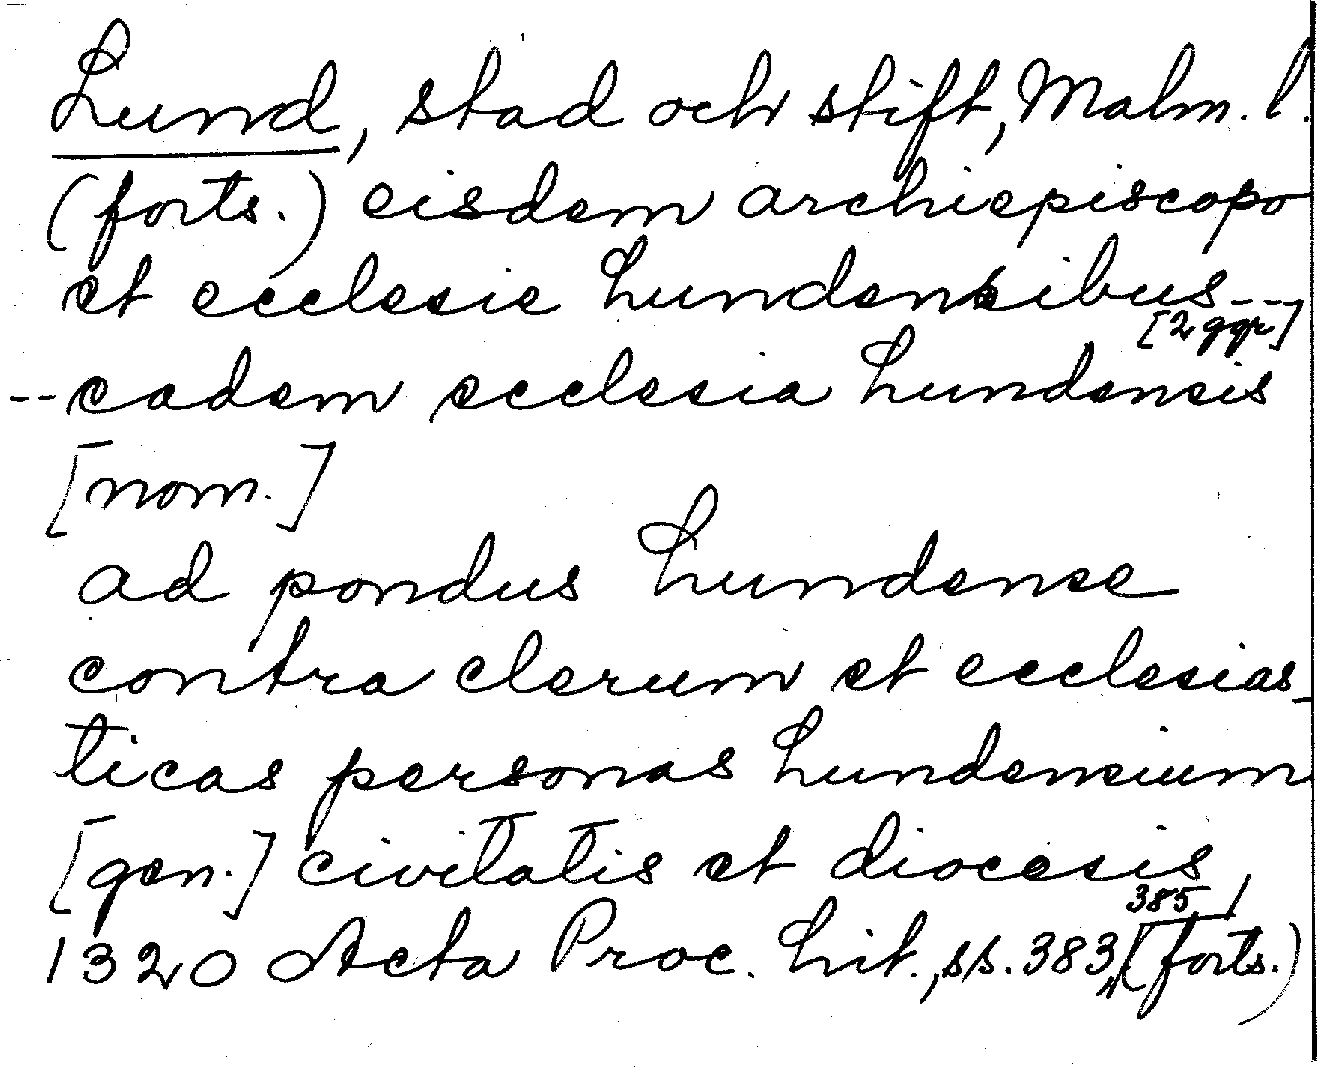 Lund, stad och stift, Malm. l.
(forts.) eisdem archiepiscopo
et ecclesie Lundensibus --
[2 ggr]
-- eadem ecclesia Lundensis
[nom.]
ad pondus Lundense
contra clerum et ecclesias-
ticas personas Lundensium
[gen.] civitatis et diocesis
1320 Acta Proc. Lit., ss. 383, 385, (forts.)